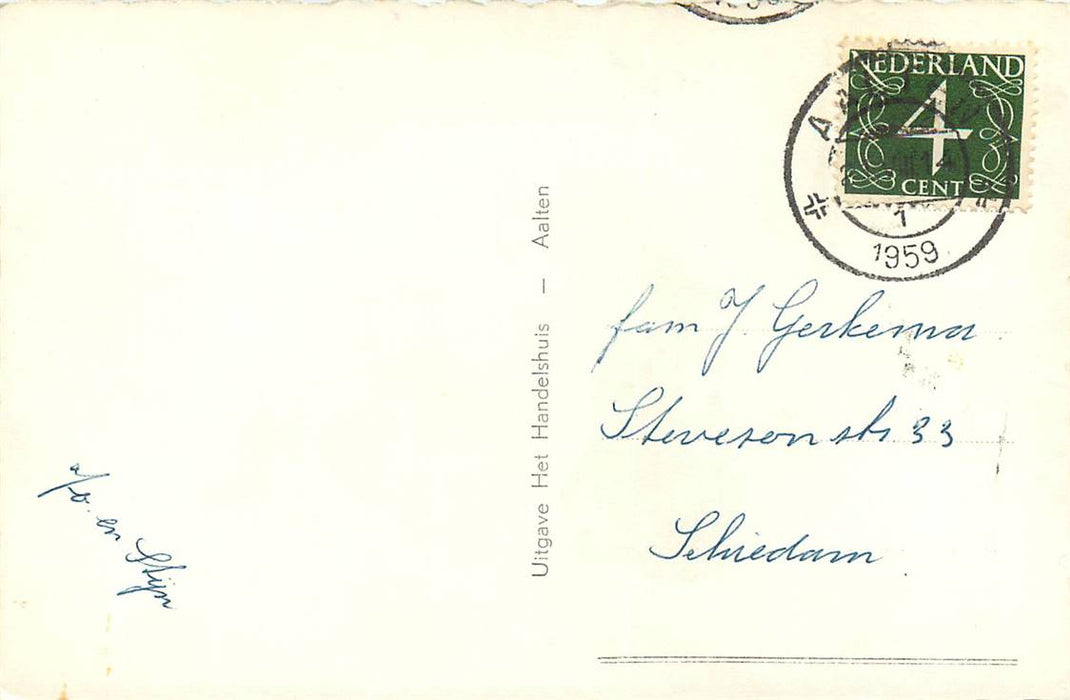 NEDERLAND
4
CENT
AALTEN
14
1
1959
Uitgave Het Handelshuis — Aalten
fam J. Gerkema
Stevesonstr 33
Schiedam
en Stijn